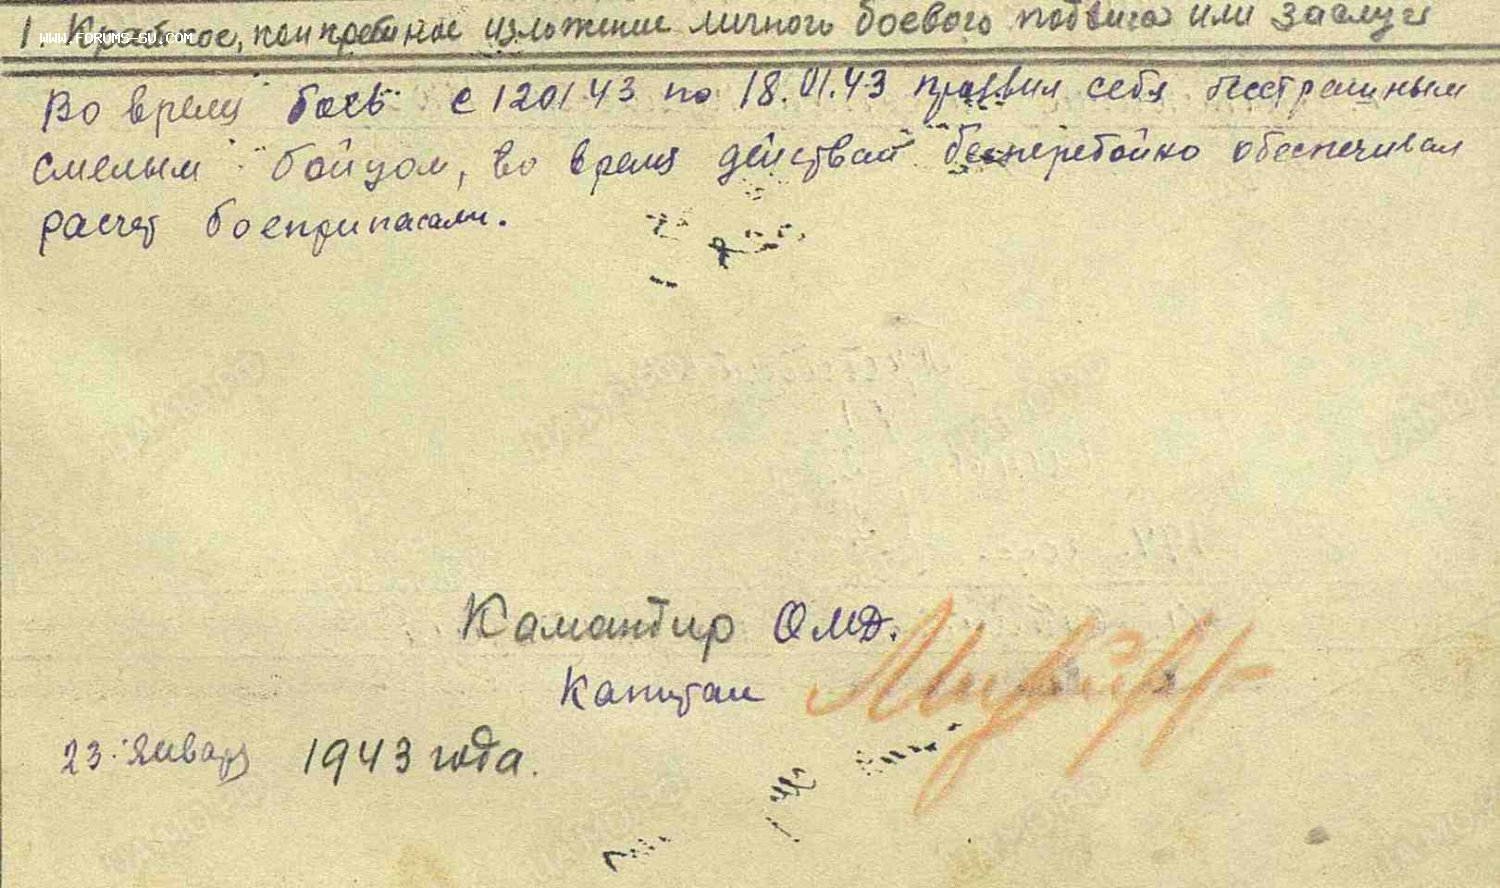 1. Краткое, конкретное изложение личного боевого подвига или заслуги
WWW.FORUMS-SU.COM
Во время боев с 120143 по 18.01.43 проявил себя бесстрашным
смелым бойцом, во время действий бесперебойно обеспечивал
расчет боеприпасами.
Камандир ОМД.
Капитан
23. Января 1943 года.